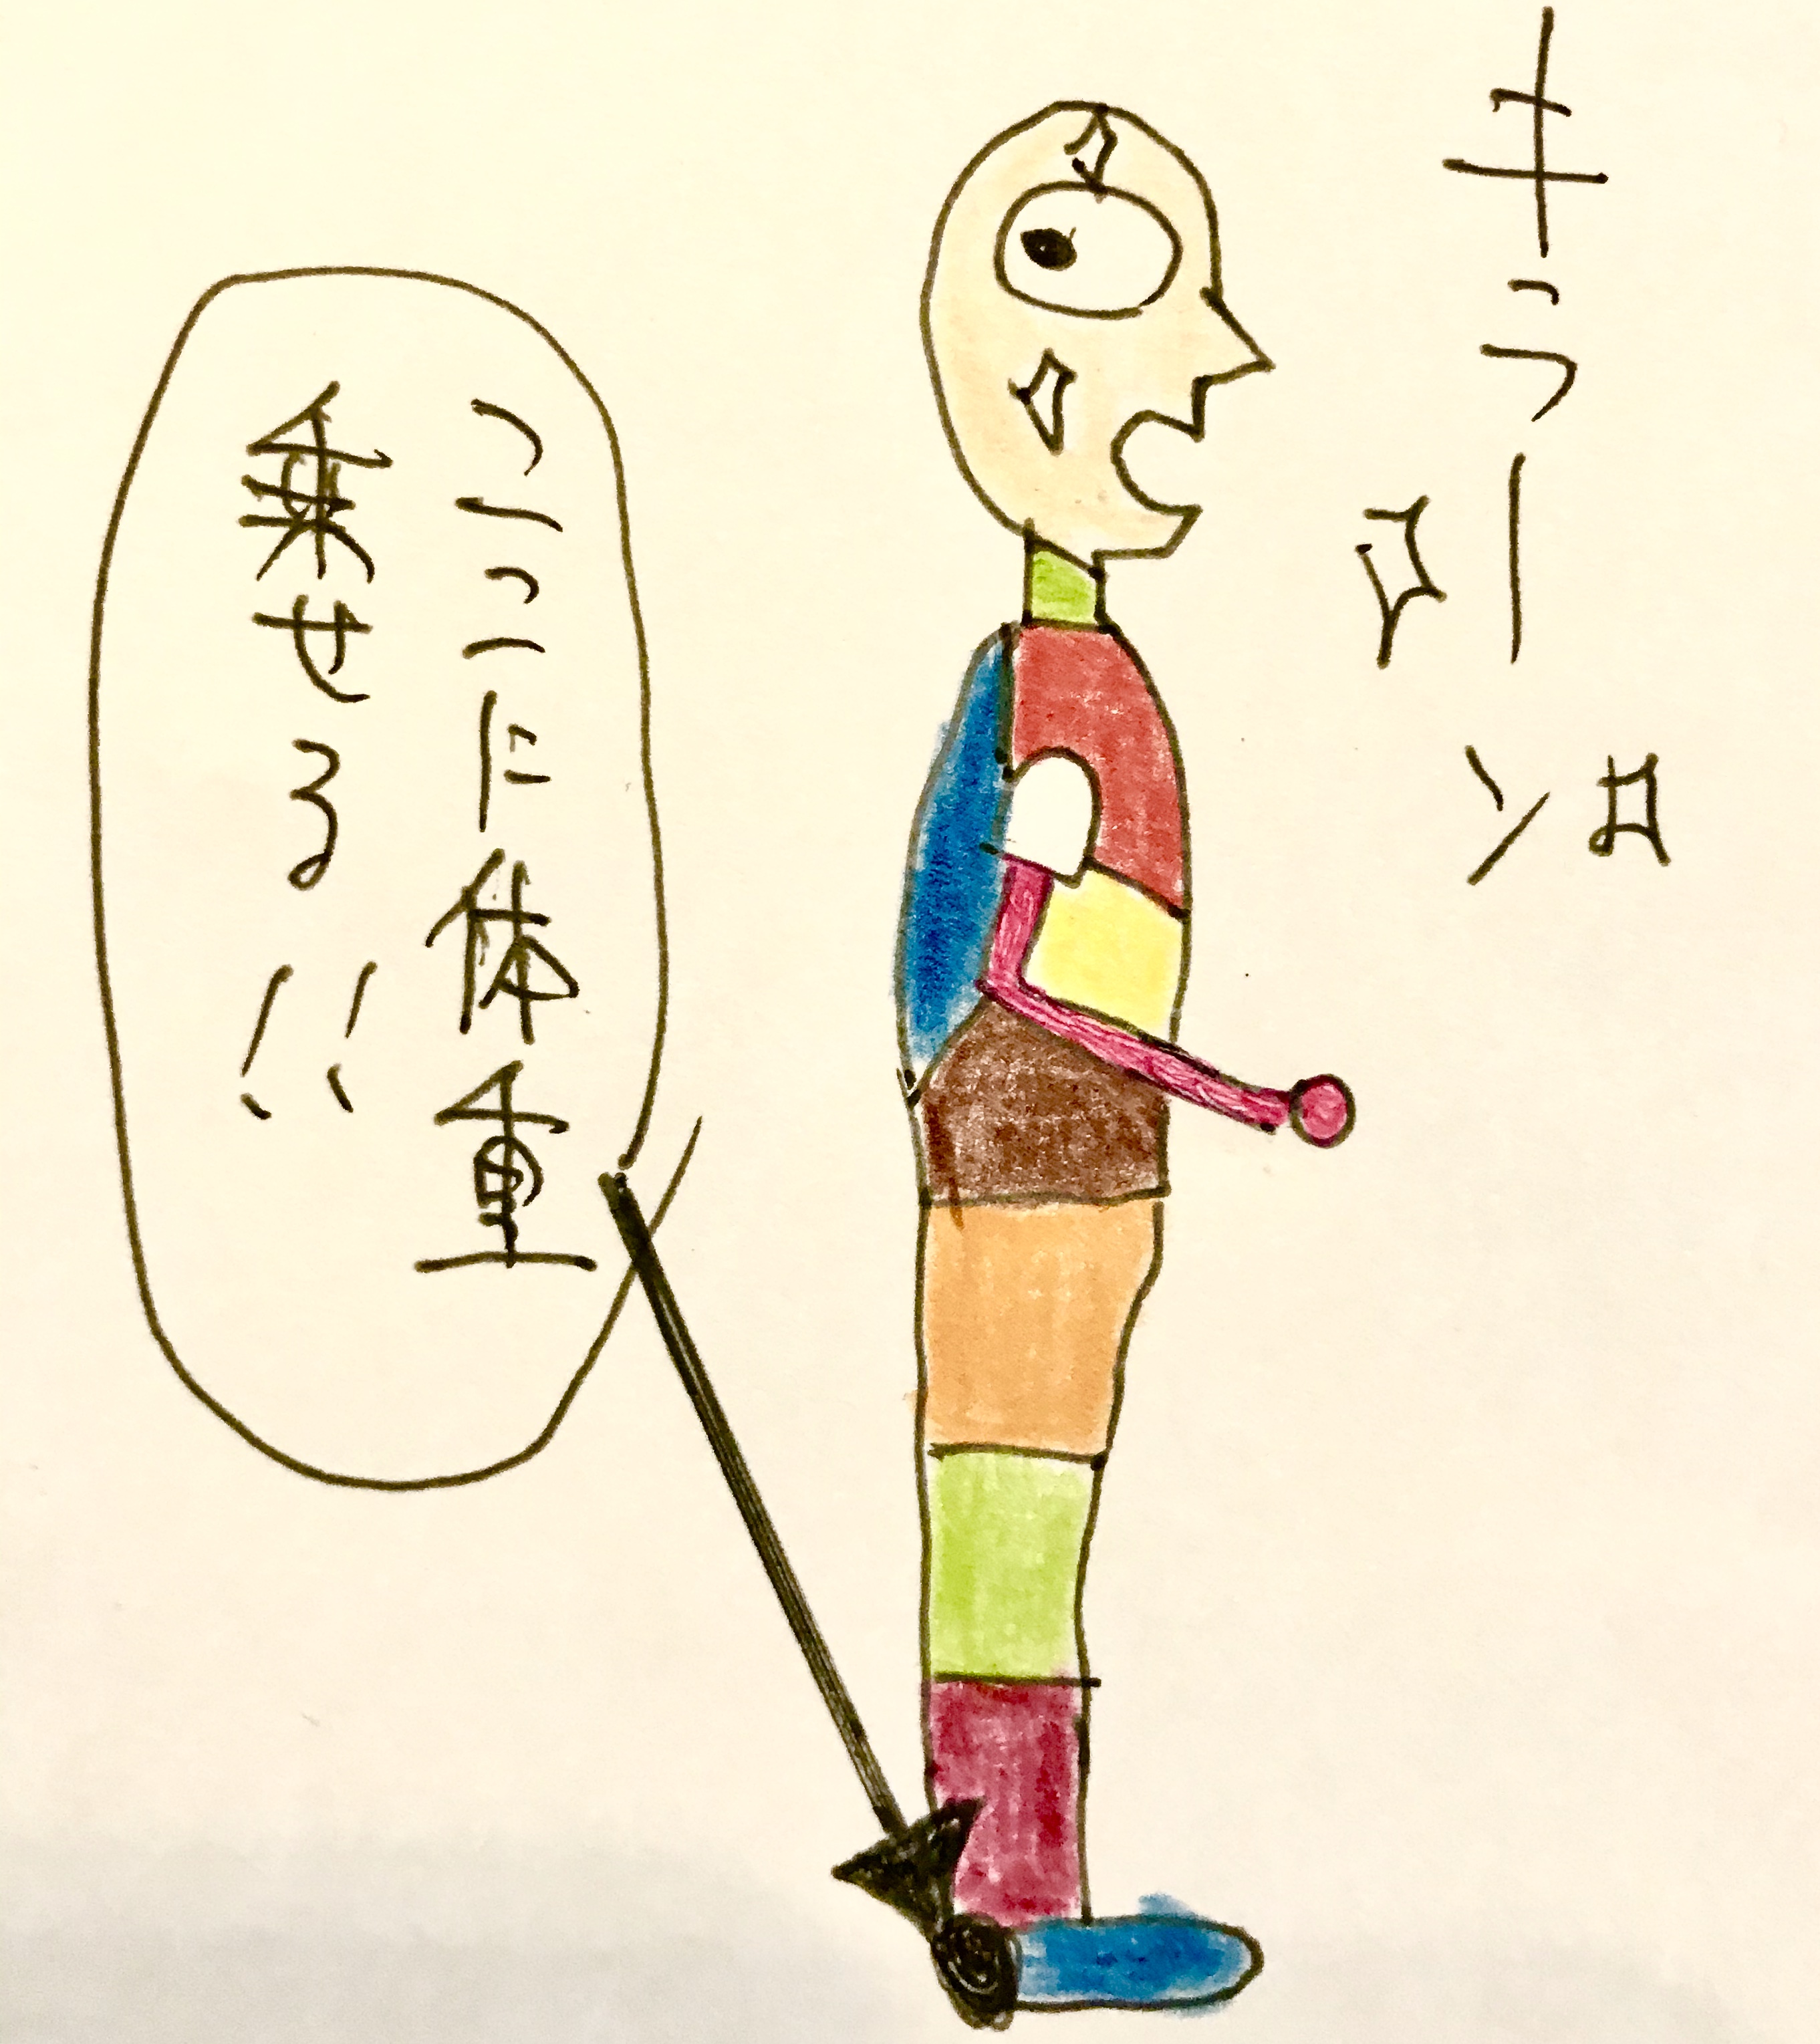 キラーン
ここに体重
乗せる!!